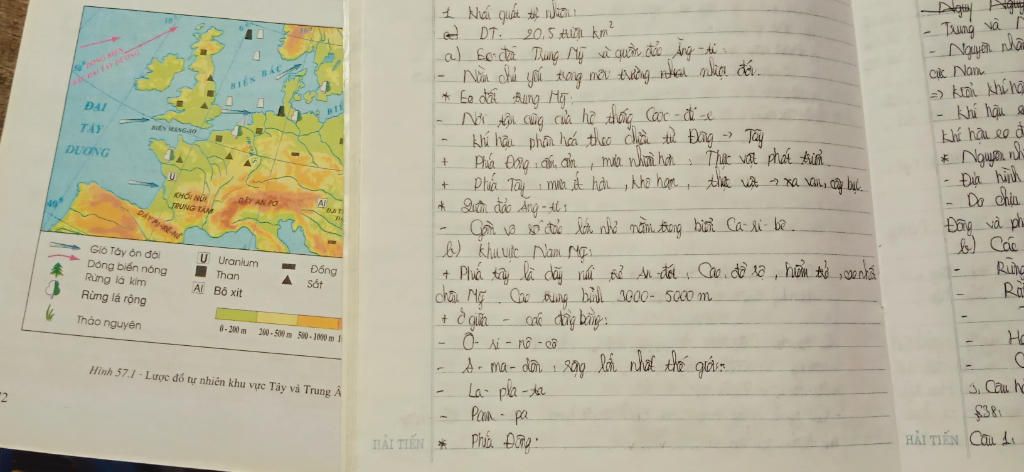 50°
10°
0°
40°
DÒNG BIỂN
BẮC ĐẠI TÂY DƯƠNG
BIỂN BẮC
ĐẠI
TÂY
DƯƠNG
BIỂN MĂNG-SƠ
KHỐI NÚI
TRUNG TÂM
DÃY AN-PƠ
DÃY PI-RÊ-NÊ
Gió Tây ôn đới
Dòng biển nóng
Rừng lá kim
Rừng lá rộng
Thảo nguyên
U Uranium
Than
Al Bô xit
Đồng
Sắt
0-200 m 200-500 m 500-1000 m
Hình 57.1 - Lược đồ tự nhiên khu vực Tây và Trung Â
1. Khái quát tự nhiên:
DT: 20,5 triệu km²
a) Eo đất Trung Mỹ và quần đảo Ăng-ti:
- Nằm chủ yếu trong môi trường nhiệt đới.
* Eo đất trung Mỹ:
- Nơi tận cùng của hệ thống Cooc-đi-e
- Khí hậu phân hoá theo chiều từ Đông → Tây
+ Phía Đông: , mưa nhiều hơn: Thực vật phát triển.
+ Phía Tây: mưa ít hơn, khô hạn, thực vật → xa van, cây bụi.
* Quần đảo Ăng-ti:
- Gồm vô số đảo lớn nhỏ nằm trong biển Ca-ri-bê.
b) Khu vực Nam Mỹ:
+ Phía tây là dãy núi trẻ An-đét, Cao, đồ sộ, hiểm trở, cao nhất
châu Mỹ. Cao trung bình 3000-5000 m
+ Ở giữa - các đồng bằng:
- Ô-ri-nô-cô
- A-ma-dôn: rộng lớn nhất thế giới
- La-pla-ta
- Pam-pa
* Phía Đông:
HẢI TIẾN
- Trung và
- Nguyên nhân
Nam
=>
- Khí hậu
Khí hậu eo đ
* Nguyên nh
- Địa hình
- Do chịu
Đông và ph
b) Các
- Rừng
-
-
3. Câu h
§38:
HẢI TIẾN
Câu 1: